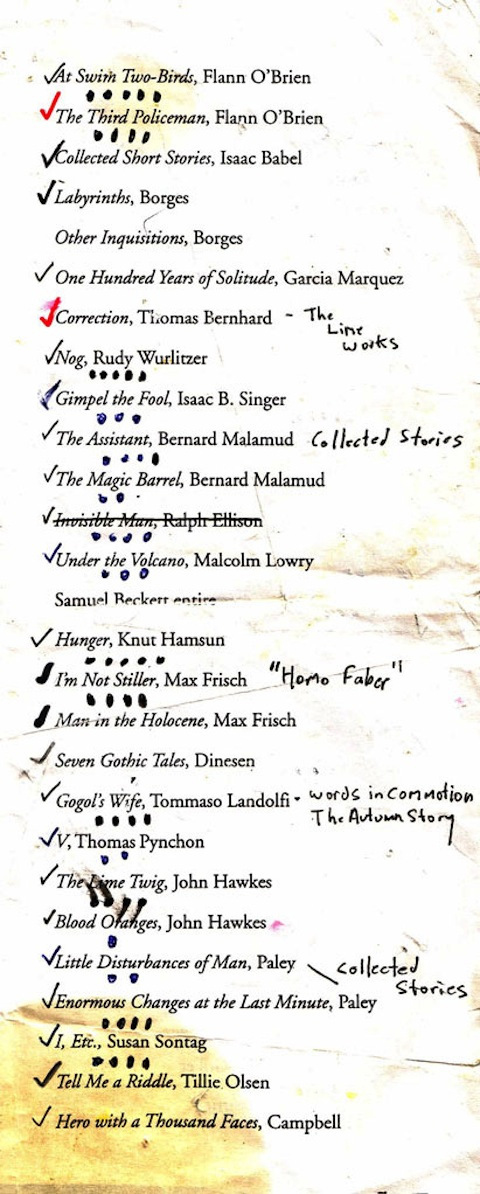 At Swim Two-Birds, Flann O'Brien
The Third Policeman, Flann O'Brien
Collected Short Stories, Isaac Babel
Labyrinths, Borges
Other Inquisitions, Borges
One Hundred Years of Solitude, Garcia Marquez
Correction, Thomas Bernhard - The Lime Works
Nog, Rudy Wurlitzer
Gimpel the Fool, Isaac B. Singer
The Assistant, Bernard Malamud Collected Stories
The Magic Barrel, Bernard Malamud
Invisible Man, Ralph Ellison
Under the Volcano, Malcolm Lowry
Samuel Beckett entire
Hunger, Knut Hamsun
I'm Not Stiller, Max Frisch "Homo Faber"!
Man in the Holocene, Max Frisch
Seven Gothic Tales, Dinesen
Gogol's Wife, Tommaso Landolfi - words in commotion
The Autumn Story
V, Thomas Pynchon
The Lime Twig, John Hawkes
Blood Oranges, John Hawkes
Little Disturbances of Man, Paley Collected Stories
Enormous Changes at the Last Minute, Paley
I, Etc., Susan Sontag
Tell Me a Riddle, Tillie Olsen
Hero with a Thousand Faces, Campbell